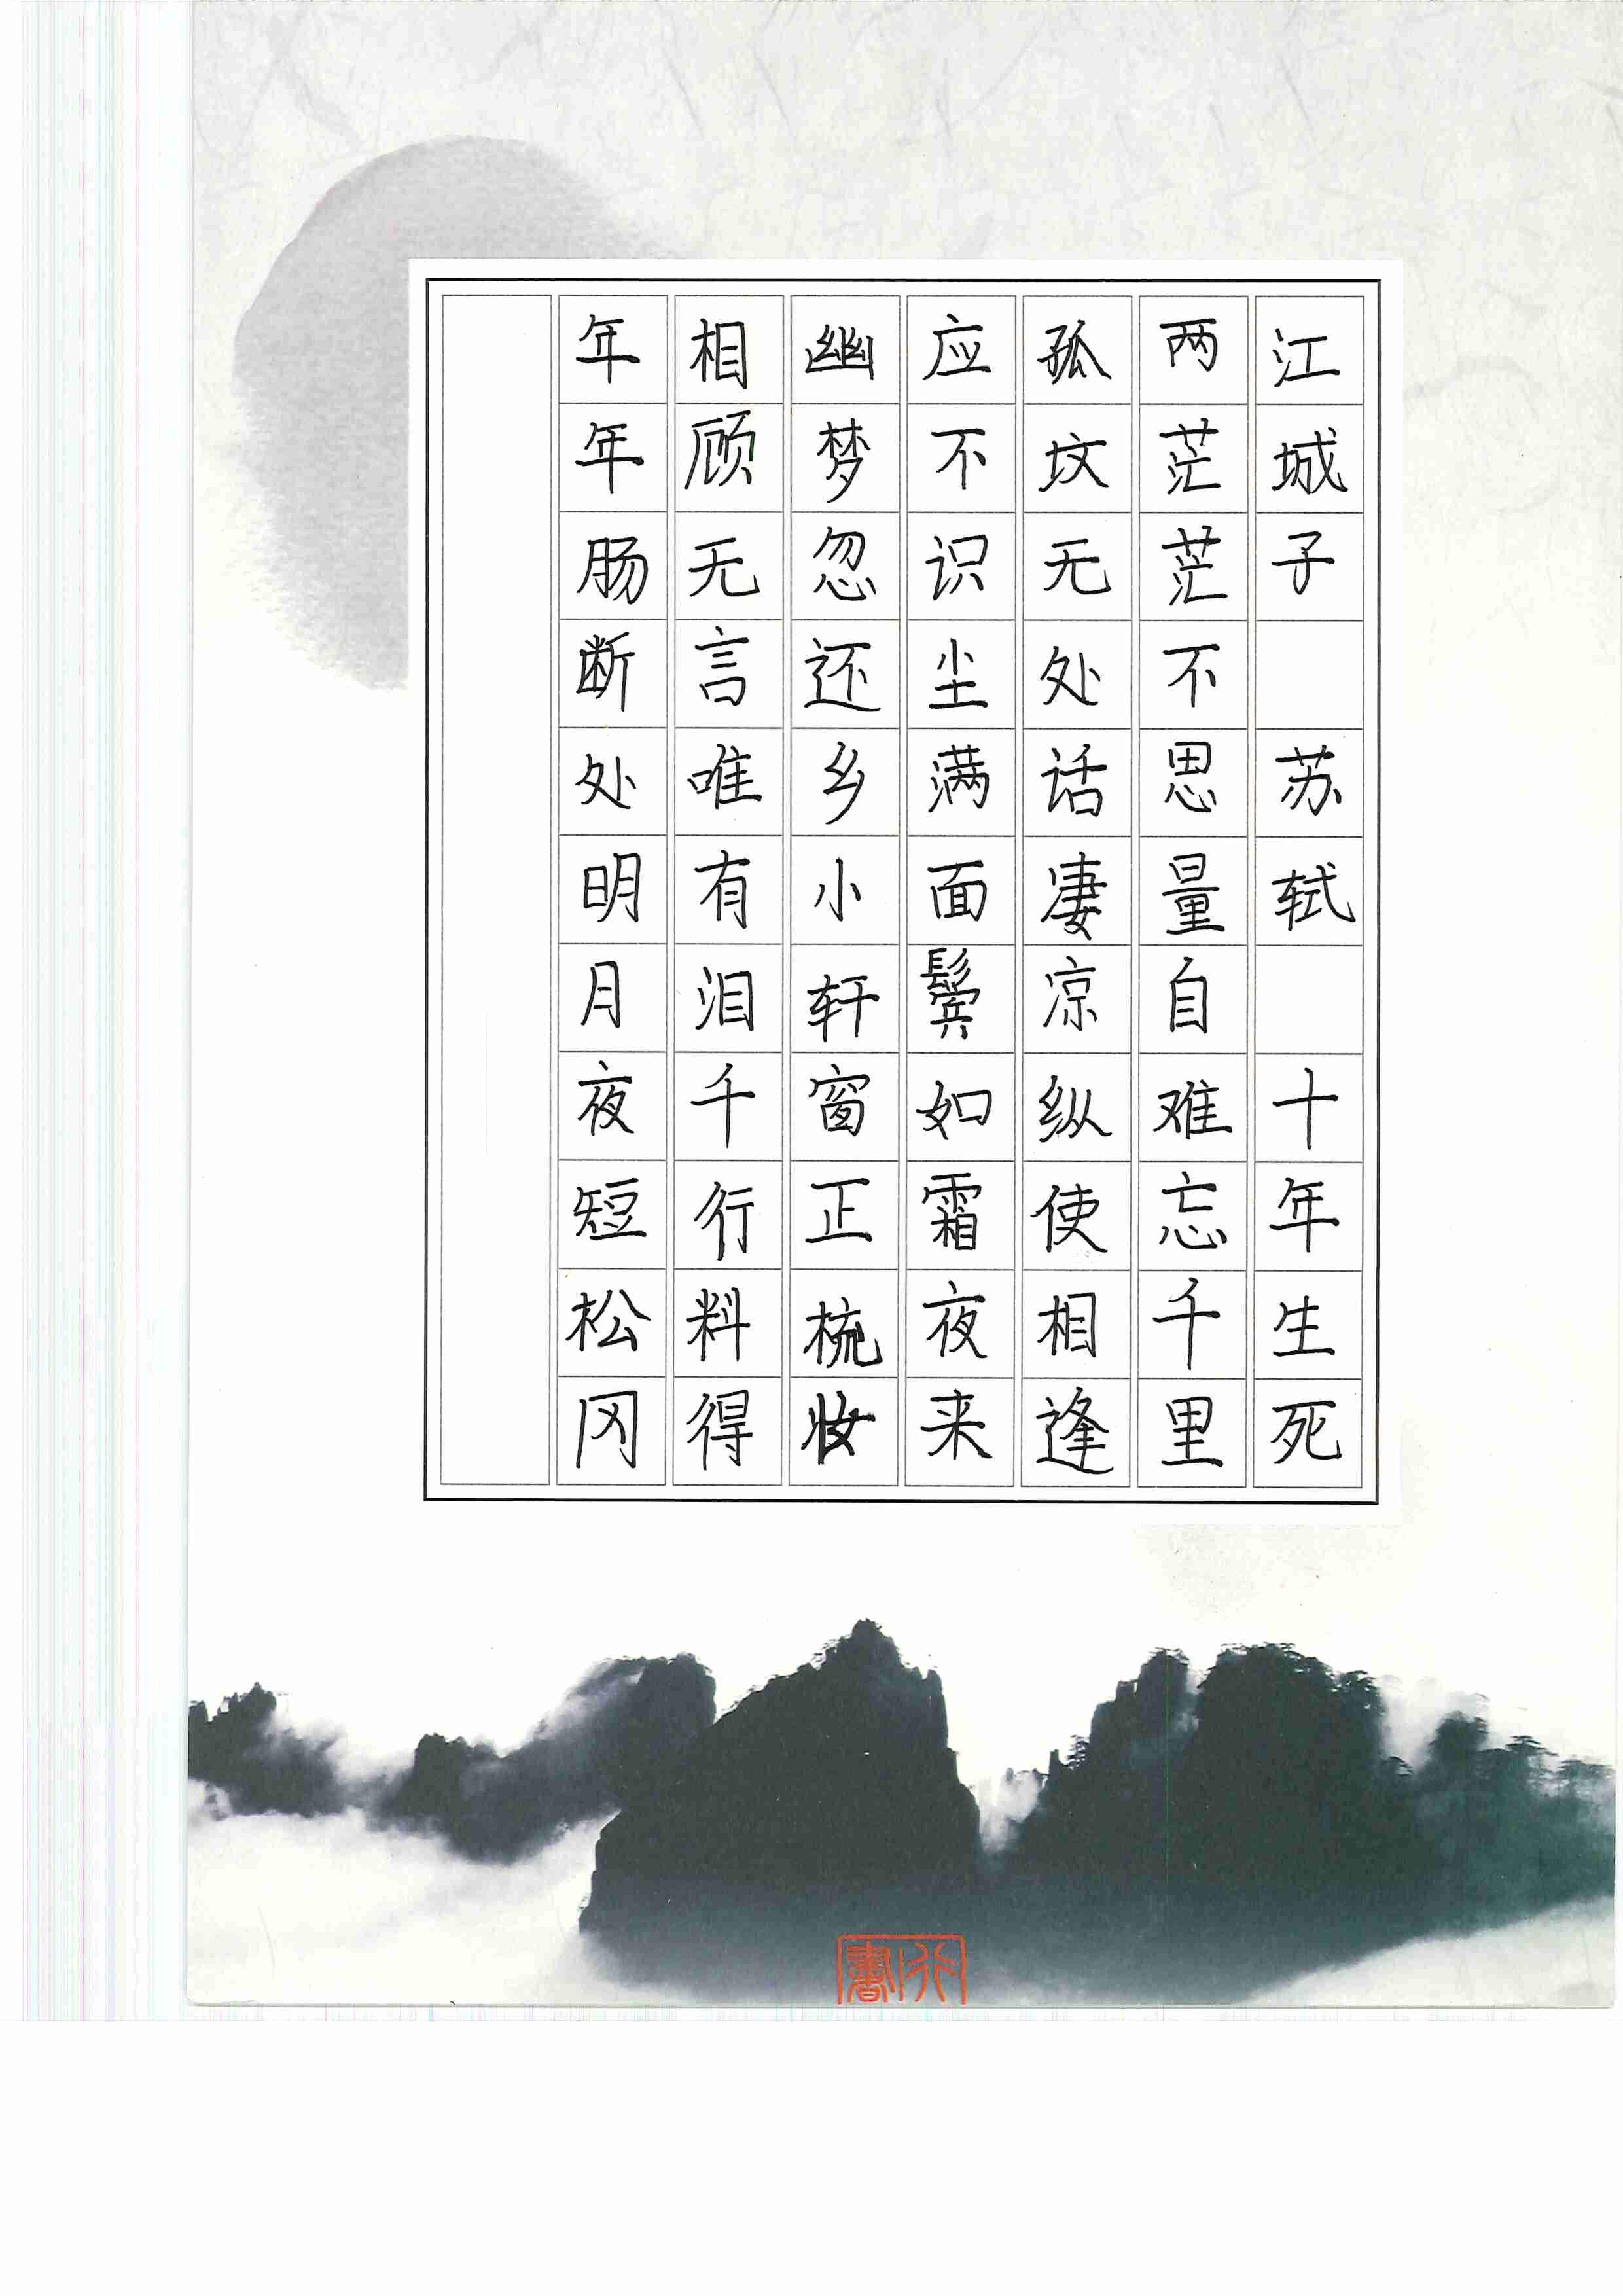 江城子 苏轼 十年生死
两茫茫不思量自难忘千里
孤坟无处话凄凉纵使相逢
应不识尘满面鬓如霜夜来
幽梦忽还乡小轩窗正梳妆
相顾无言唯有泪千行料得
年年肠断处明月夜短松冈